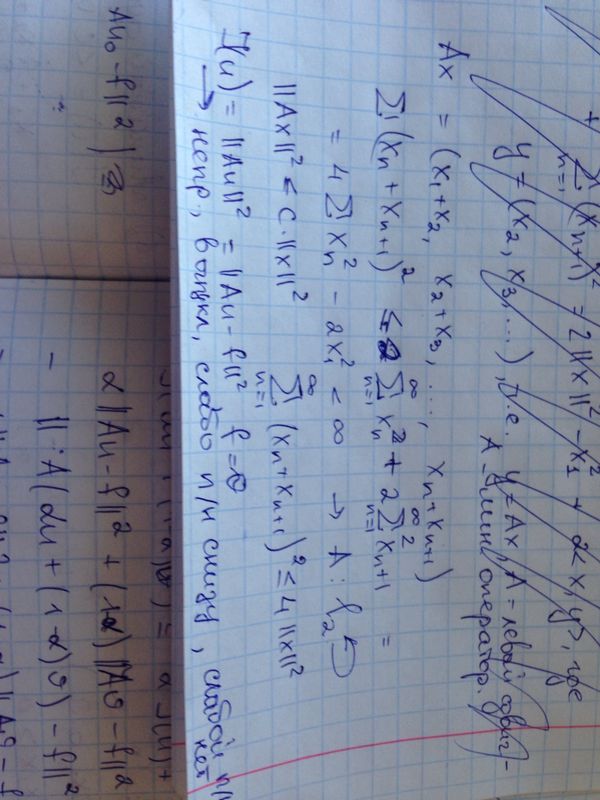 + ∑ₙ₌₁ (xₙ₊₁)² = 2||x||² - x₁² + 2<x, y>, где
y = (x₂, x₃, ...), т.е. y = Ax, A = левой сдвиг-
A - лин. оператор.
Ax = (x₁+x₂, x₂+x₃, ..., xₙ+xₙ₊₁)
∑(xₙ + xₙ₊₁)² ≤ 2∑ₙ₌₁^∞ xₙ² + 2∑ₙ₌₁^∞ xₙ₊₁² =
= 4∑xₙ² - 2x₁² < ∞ → A: l₂
||Ax||² ≤ C·||x||² ∑ₙ₌₁^∞ (xₙ+xₙ₊₁)² ≤ 4||x||²
J(u) = ||Au||² = ||Au - f||² f=0
→ непр, выпукл, слабо п/н снизу, слабой п/
нет
Au₀ - f||²) =
α||Au - f||² + (1-α)||Av - f||²
- ||A(αu + (1-α)v) - f||²